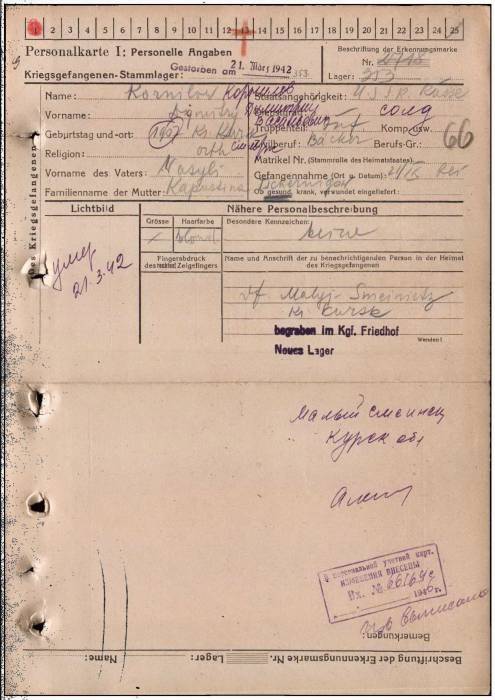 1 2 3 4 5 6 7 8 9 10 11 12 13 14 15 16 17 18 19 20 21 22 23 24 25
Personalkarte I: Personelle Angaben
Beschriftung der Erkennungsmarke
Nr.
Gestorben am 21. März 1942
353
Kriegsgefangenen-Stammlager:
Lager: 353
Des Kriegsgefangenen
Name: Kornilow Корнилов
Staatsangehörigkeit: U.S.S.R.
Vorname: Dymitry Дмитрий Васильевич
Dienstgrad: солд
Geburtstag und -ort: 1907 Kr. Kursk
Truppenteil: Inf. Komp. usw.
66
Religion: orth
Zivilberuf: Bäcker Berufs-Gr.:
Matrikel Nr. (Stammrolle des Heimatstaates):
Vorname des Vaters: Wasyli
Gefangennahme (Ort u. Datum):
Familienname der Mutter: Kapustina
Ob gesund, krank, verwundet eingeliefert:
Lichtbild
Nähere Personalbeschreibung
Grösse Haarfarbe
Besondere Kennzeichen:
/ blond
keine
умер
21.3.42
Fingerabdruck
des rechten Zeigefingers
Name und Anschrift der zu benachrichtigenden Person in der Heimat
des Kriegsgefangenen
Df. Malyj-
Kr. Kursk
begraben im Kgf. Friedhof
Neues Lager
Wenden!
Малый
Курск обл
В персональной учетной карт.
ИЗМЕНЕНИЯ ВНЕСЕНЫ
Вх. №
194 г.
выписано
Bemerkungen:
Name: Lager: Beschriftung der Erkennungsmarke Nr.